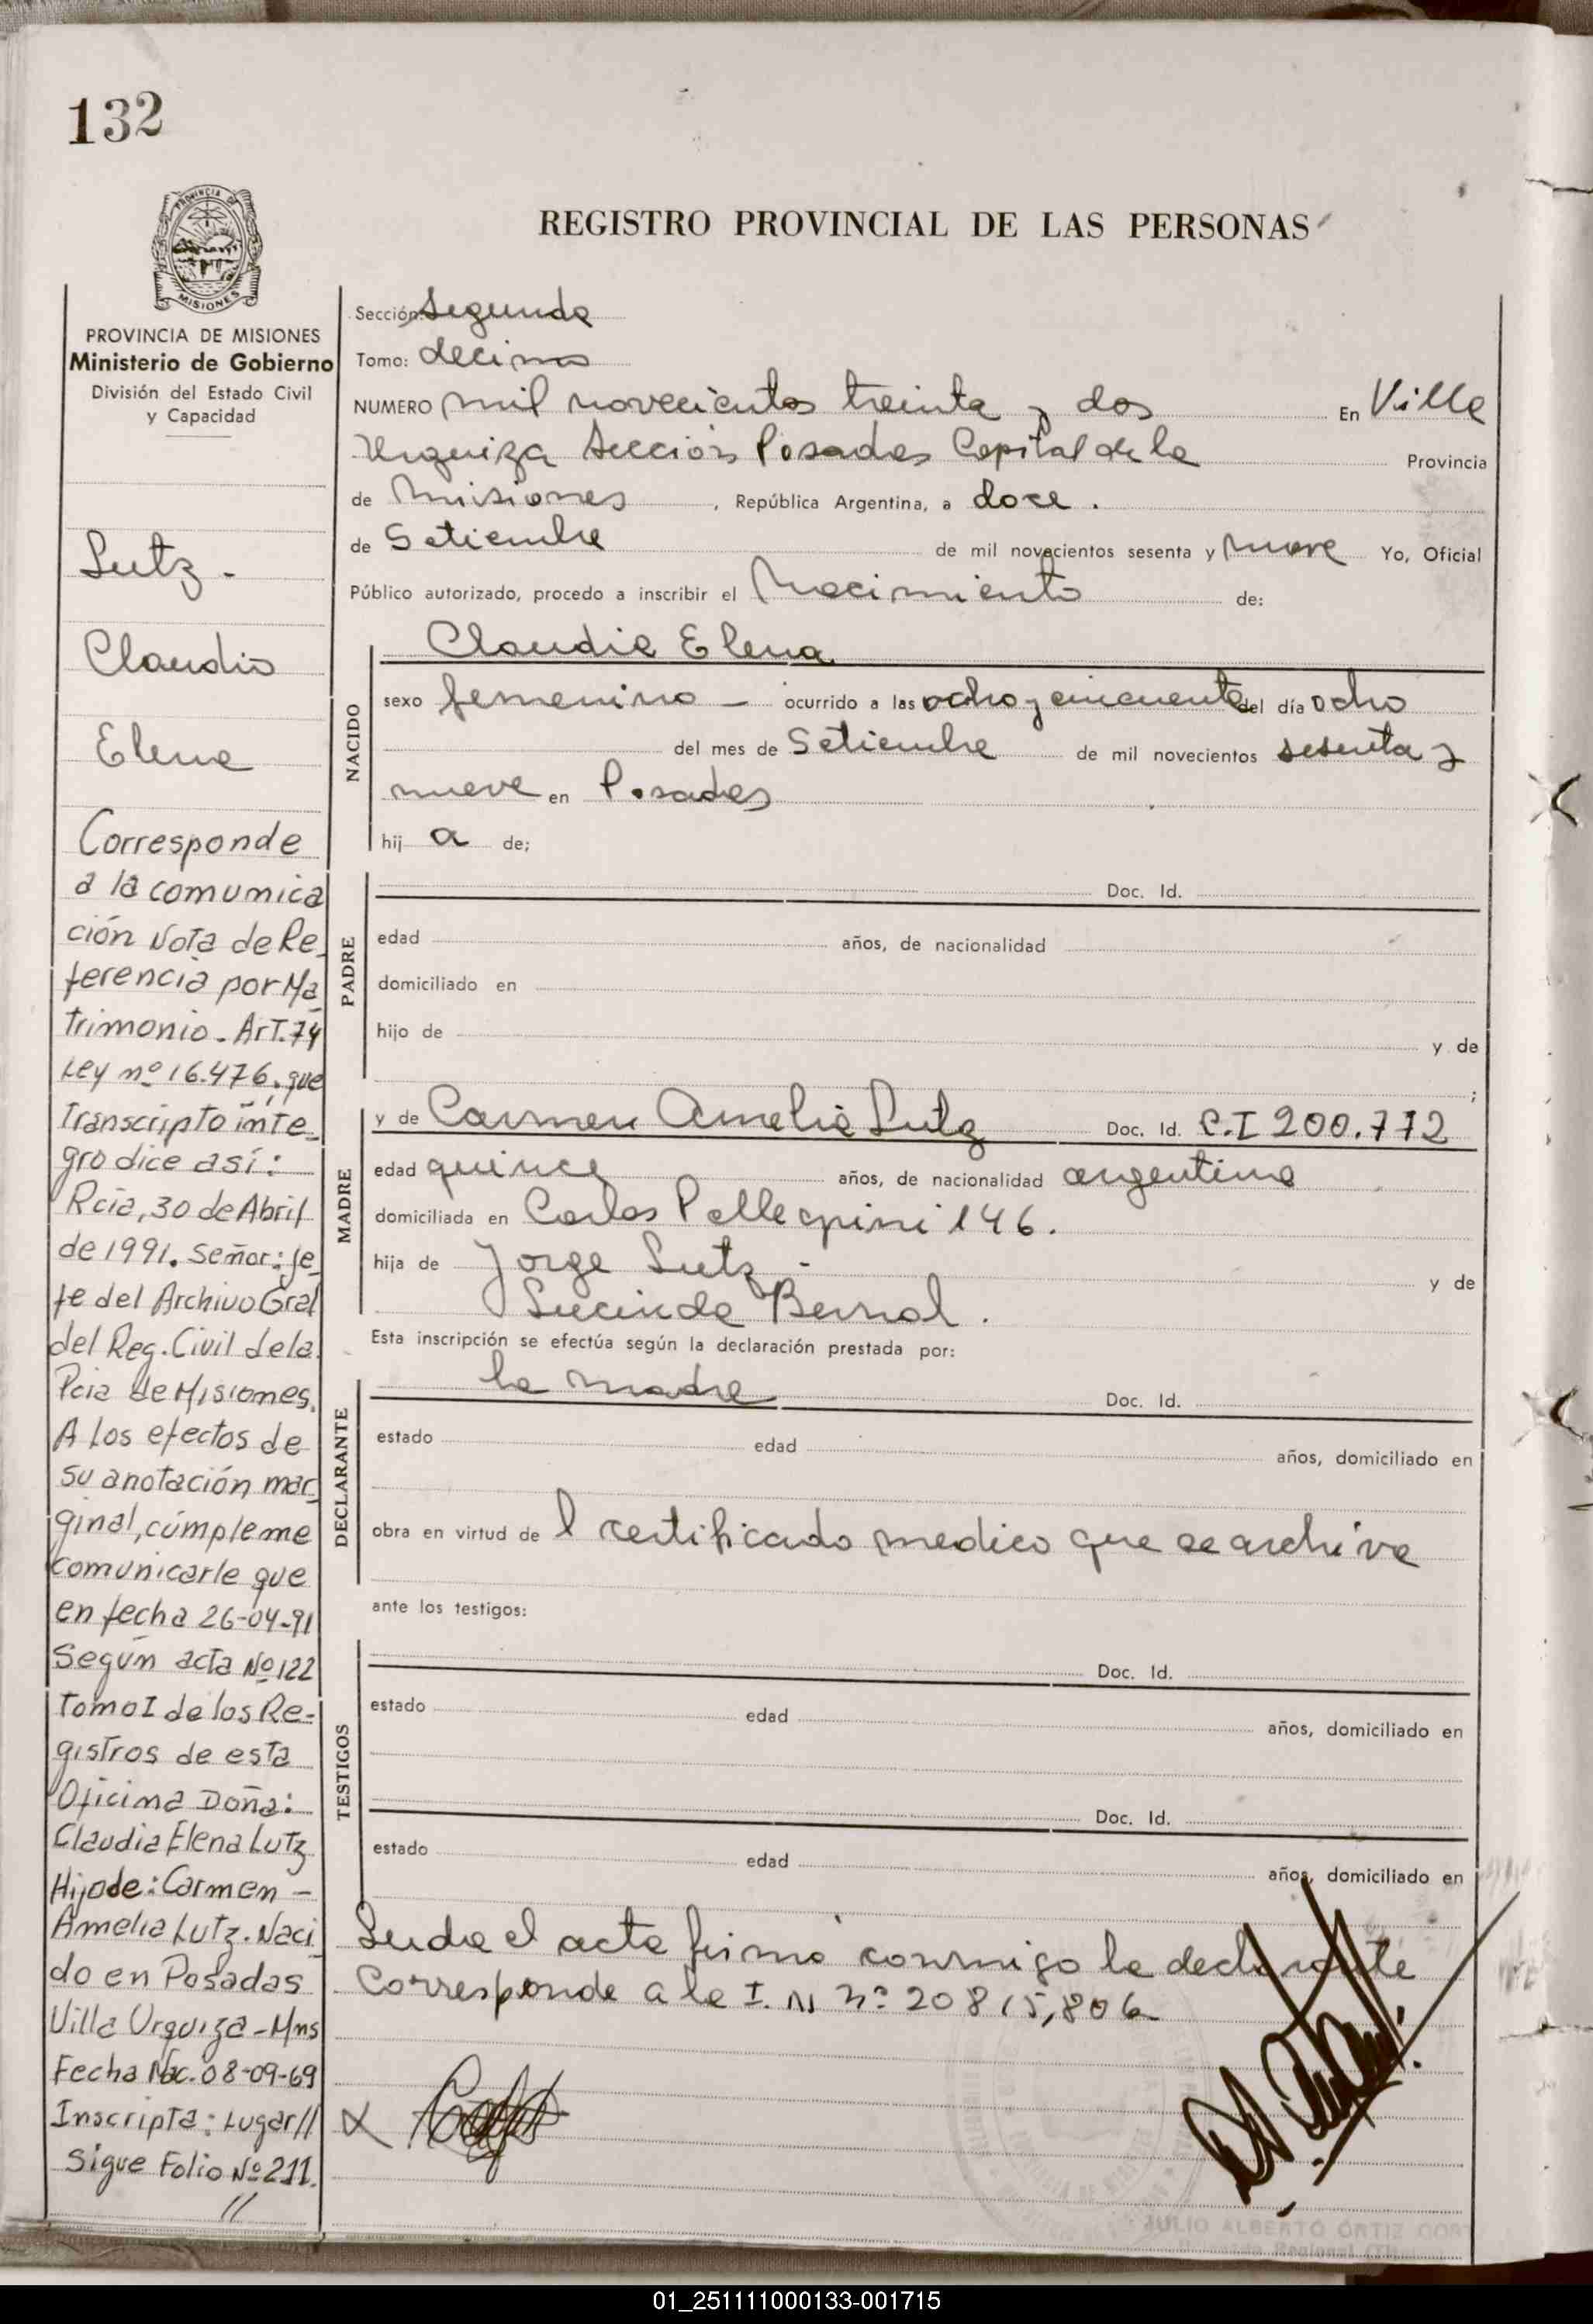 132
PROVINCIA DE
MISIONES
PROVINCIA DE MISIONES
Ministerio de Gobierno
División del Estado Civil
y Capacidad
Lutz.
Claudia
Elena
Corresponde
a la comunica
ción Nota de Re_
ferencia por Ma_
trimonio. Art. 74
Ley nº 16.476, que
Transcripto inte_
gro dice así:
Rcia, 30 de Abril
de 1991. Señor: Je_
fe del Archivo Gral
del Reg. Civil de la
Pcia de Misiones.
A los efectos de
su anotación mar_
ginal, cúmpleme
comunicarle que
en fecha 26-04-91
Según acta Nº 122
Tomo I de los Re=
gistros de esta
Oficina Doña:
Claudia Elena Lutz
Hijo de: Carmen -
Amelia Lutz. Naci_
do en Posadas
Villa Urquiza - Mns
Fecha Nac. 08-09-69
Inscripta: Lugar//
Sigue Folio Nº 211.
//
REGISTRO PROVINCIAL DE LAS PERSONAS
Sección: Segunda
Tomo: decimo
NUMERO mil novecientos treinta y dos En Villa
Urquiza Sección Posadas Capital de la Provincia
de Misiones, República Argentina, a doce.
de Setiembre de mil novecientos sesenta y nueve Yo, Oficial
Público autorizado, procedo a inscribir el Nacimiento de:
NACIDO
Claudia Elena
sexo femenino - ocurrido a las ocho y cincuenta del día ocho
del mes de Setiembre de mil novecientos sesenta y
nueve en Posadas
hij a de;
PADRE
Doc. Id.
edad años, de nacionalidad
domiciliado en
hijo de y de
;
MADRE
y de Carmen Amelia Lutz Doc. Id. C.I 200.772
edad quince años, de nacionalidad argentina
domiciliada en Carlos Pellegrini 146.
hija de Jorge Lutz - y de
Lucinda Bernal.
Esta inscripción se efectúa según la declaración prestada por:
DECLARANTE
la madre Doc. Id.
estado edad años, domiciliado en
obra en virtud de l certificado medico que se archiva
ante los testigos:
TESTIGOS
Doc. Id.
estado edad años, domiciliado en
Doc. Id.
estado edad años, domiciliado en
Leida el acta firma conmigo la declarante
Corresponde a la I. N nº 20815,806
JULIO ALBERTO ORTIZ
01_251111000133-001715